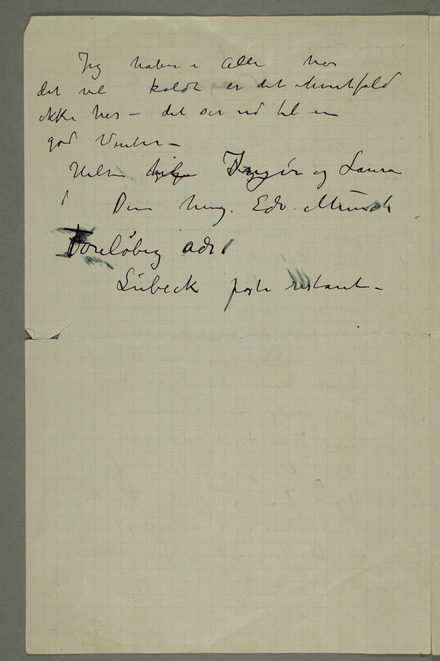 Jeg haber i Alle har
det vel koldt er det ialmindfald
ikke her – det ser ud til en
god Vinter –
Hils Inger og Laura
Din heng. Edv. Munch
Foreløbig adr
Lübeck poste restant –